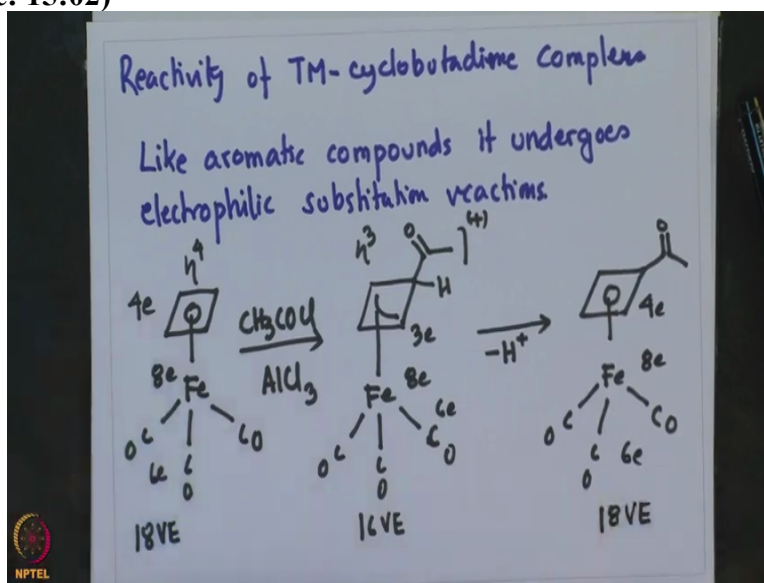 c: 13:02)
Reactivity of TM-cyclobutadiene Complexes
Like aromatic compounds it undergoes
electrophilic substitution reactions.
η4
4e
8e Fe
OC CO
6e C
O
18VE
CH3COCl
AlCl3
η3
O
](+)
H
3e
Fe 8e
6e
OC CO
C
O
16VE
-H+
O
4e
Fe 8e
OC CO
C 6e
O
18VE
NPTEL